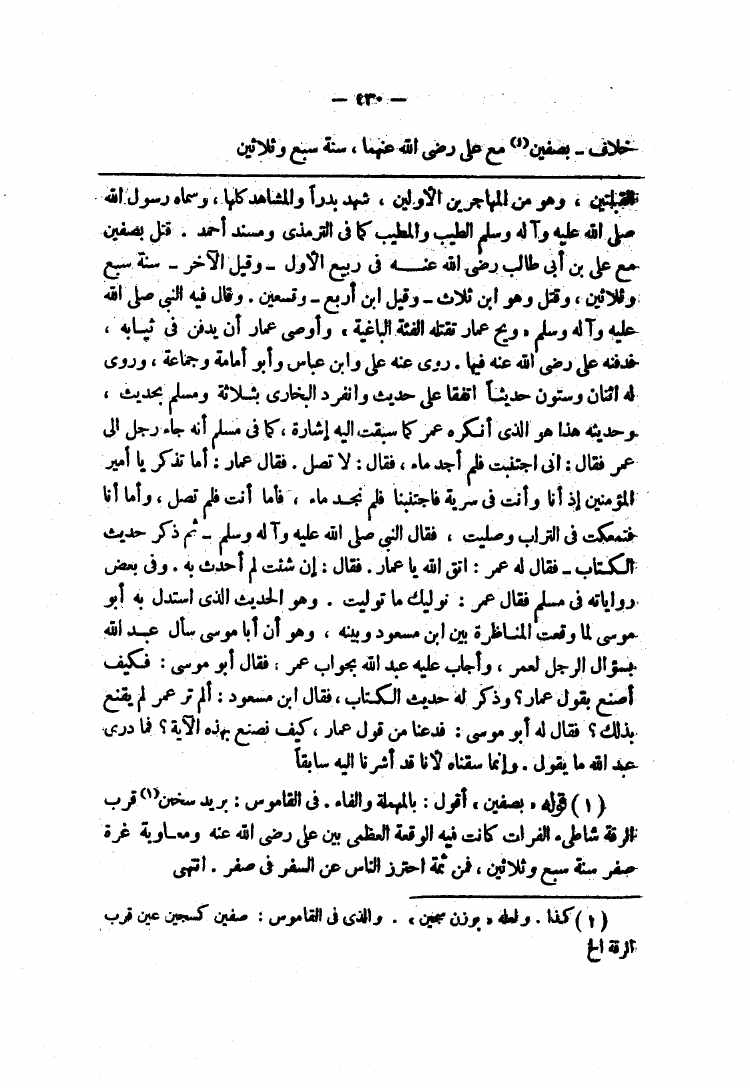 — ٤٣٠ —
خلاف ـ بصفين(١) مع على رضى الله عنهما ، سنة سبع وثلاثين
القبلتين ، وهو من المهاجرين الأولين ، شهد بدراً والمشاهد كلها ، وسماه رسول الله
صلى الله عليه وآله وسلم الطيب والمطيب كما فى الترمذى ومسند أحمد . قتل بصفين
مع على بن أبى طالب رضى الله عنه فى ربيع الأول ـ وقيل الآخر ـ سنة سبع
وثلاثين ، وقتل وهو ابن ثلاث ـ وقيل ابن أربع ـ وتسعين . وقال فيه النبى صلى الله
عليه وآله وسلم « ويح عمار تقتله الفئة الباغية » وأوصى عمار أن يدفن فى ثيابه ،
فدفنه على رضى الله عنه فيها . روى عنه على وابن عباس وأبو أمامة وجماعة ، وروى
له اثنان وستون حديثاً اتفقا على حديث وانفرد البخارى بثلاثة ومسلم بحديث ،
وحديثه هذا هو الذى أنكره عمر كما سبقت اليه إشارة ، كما فى مسلم أنه جاء رجل الى
عمر فقال : انى اجتنبت فلم أجد ماء ، فقال : لا تصل . فقال عمار : أما تذكر يا أمير
المؤمنين إذ أنا وأنت فى سرية فاجتنبنا فلم نجد ماء ، فأما أنت فلم تصل ، وأما أنا
فتمعكت فى التراب وصليت ، فقال النبى صلى الله عليه وآله وسلم ـ ثم ذكر حديث
الكتاب ـ فقال له عمر : اتق الله يا عمار . فقال : إن شئت لم أحدث به . وفى بعض
رواياته فى مسلم فقال عمر : نوليك ما توليت . وهو الحديث الذى استدل به أبو
موسى لما وقعت المناظرة بين ابن مسعود وبينه ، وهو أن أبا موسى سأل عبد الله
بسؤال الرجل لعمر ، وأجاب عليه عبد الله بجواب عمر ، فقال أبو موسى : فكيف
أصنع بقول عمار ؟ وذكر له حديث الكتاب ، فقال ابن مسعود : ألم تر عمر لم يقنع
بذلك ؟ فقال له أبو موسى : فدعنا من قول عمار ، كيف نصنع بهذه الآية ؟ فما درى
عبد الله ما يقول . وإنما سقناه لأنا قد أشرنا اليه سابقاً
(١) قوله « بصفين ، أقول : بالمهملة والفاء . فى القاموس : بريد سخين(١) قرب
الرقة شاطىء الفرات كانت فيه الوقعة العظمى بين على رضى الله عنه ومعاوية غرة
صفر سنة سبع وثلاثين ، فمن ثمة احترز الناس عن السفر فى صفر . انتهى
(١) كذا . ولعله « بوزن سجين » . والذى فى القاموس : صفين كسجين عين قرب
الرقة الخ